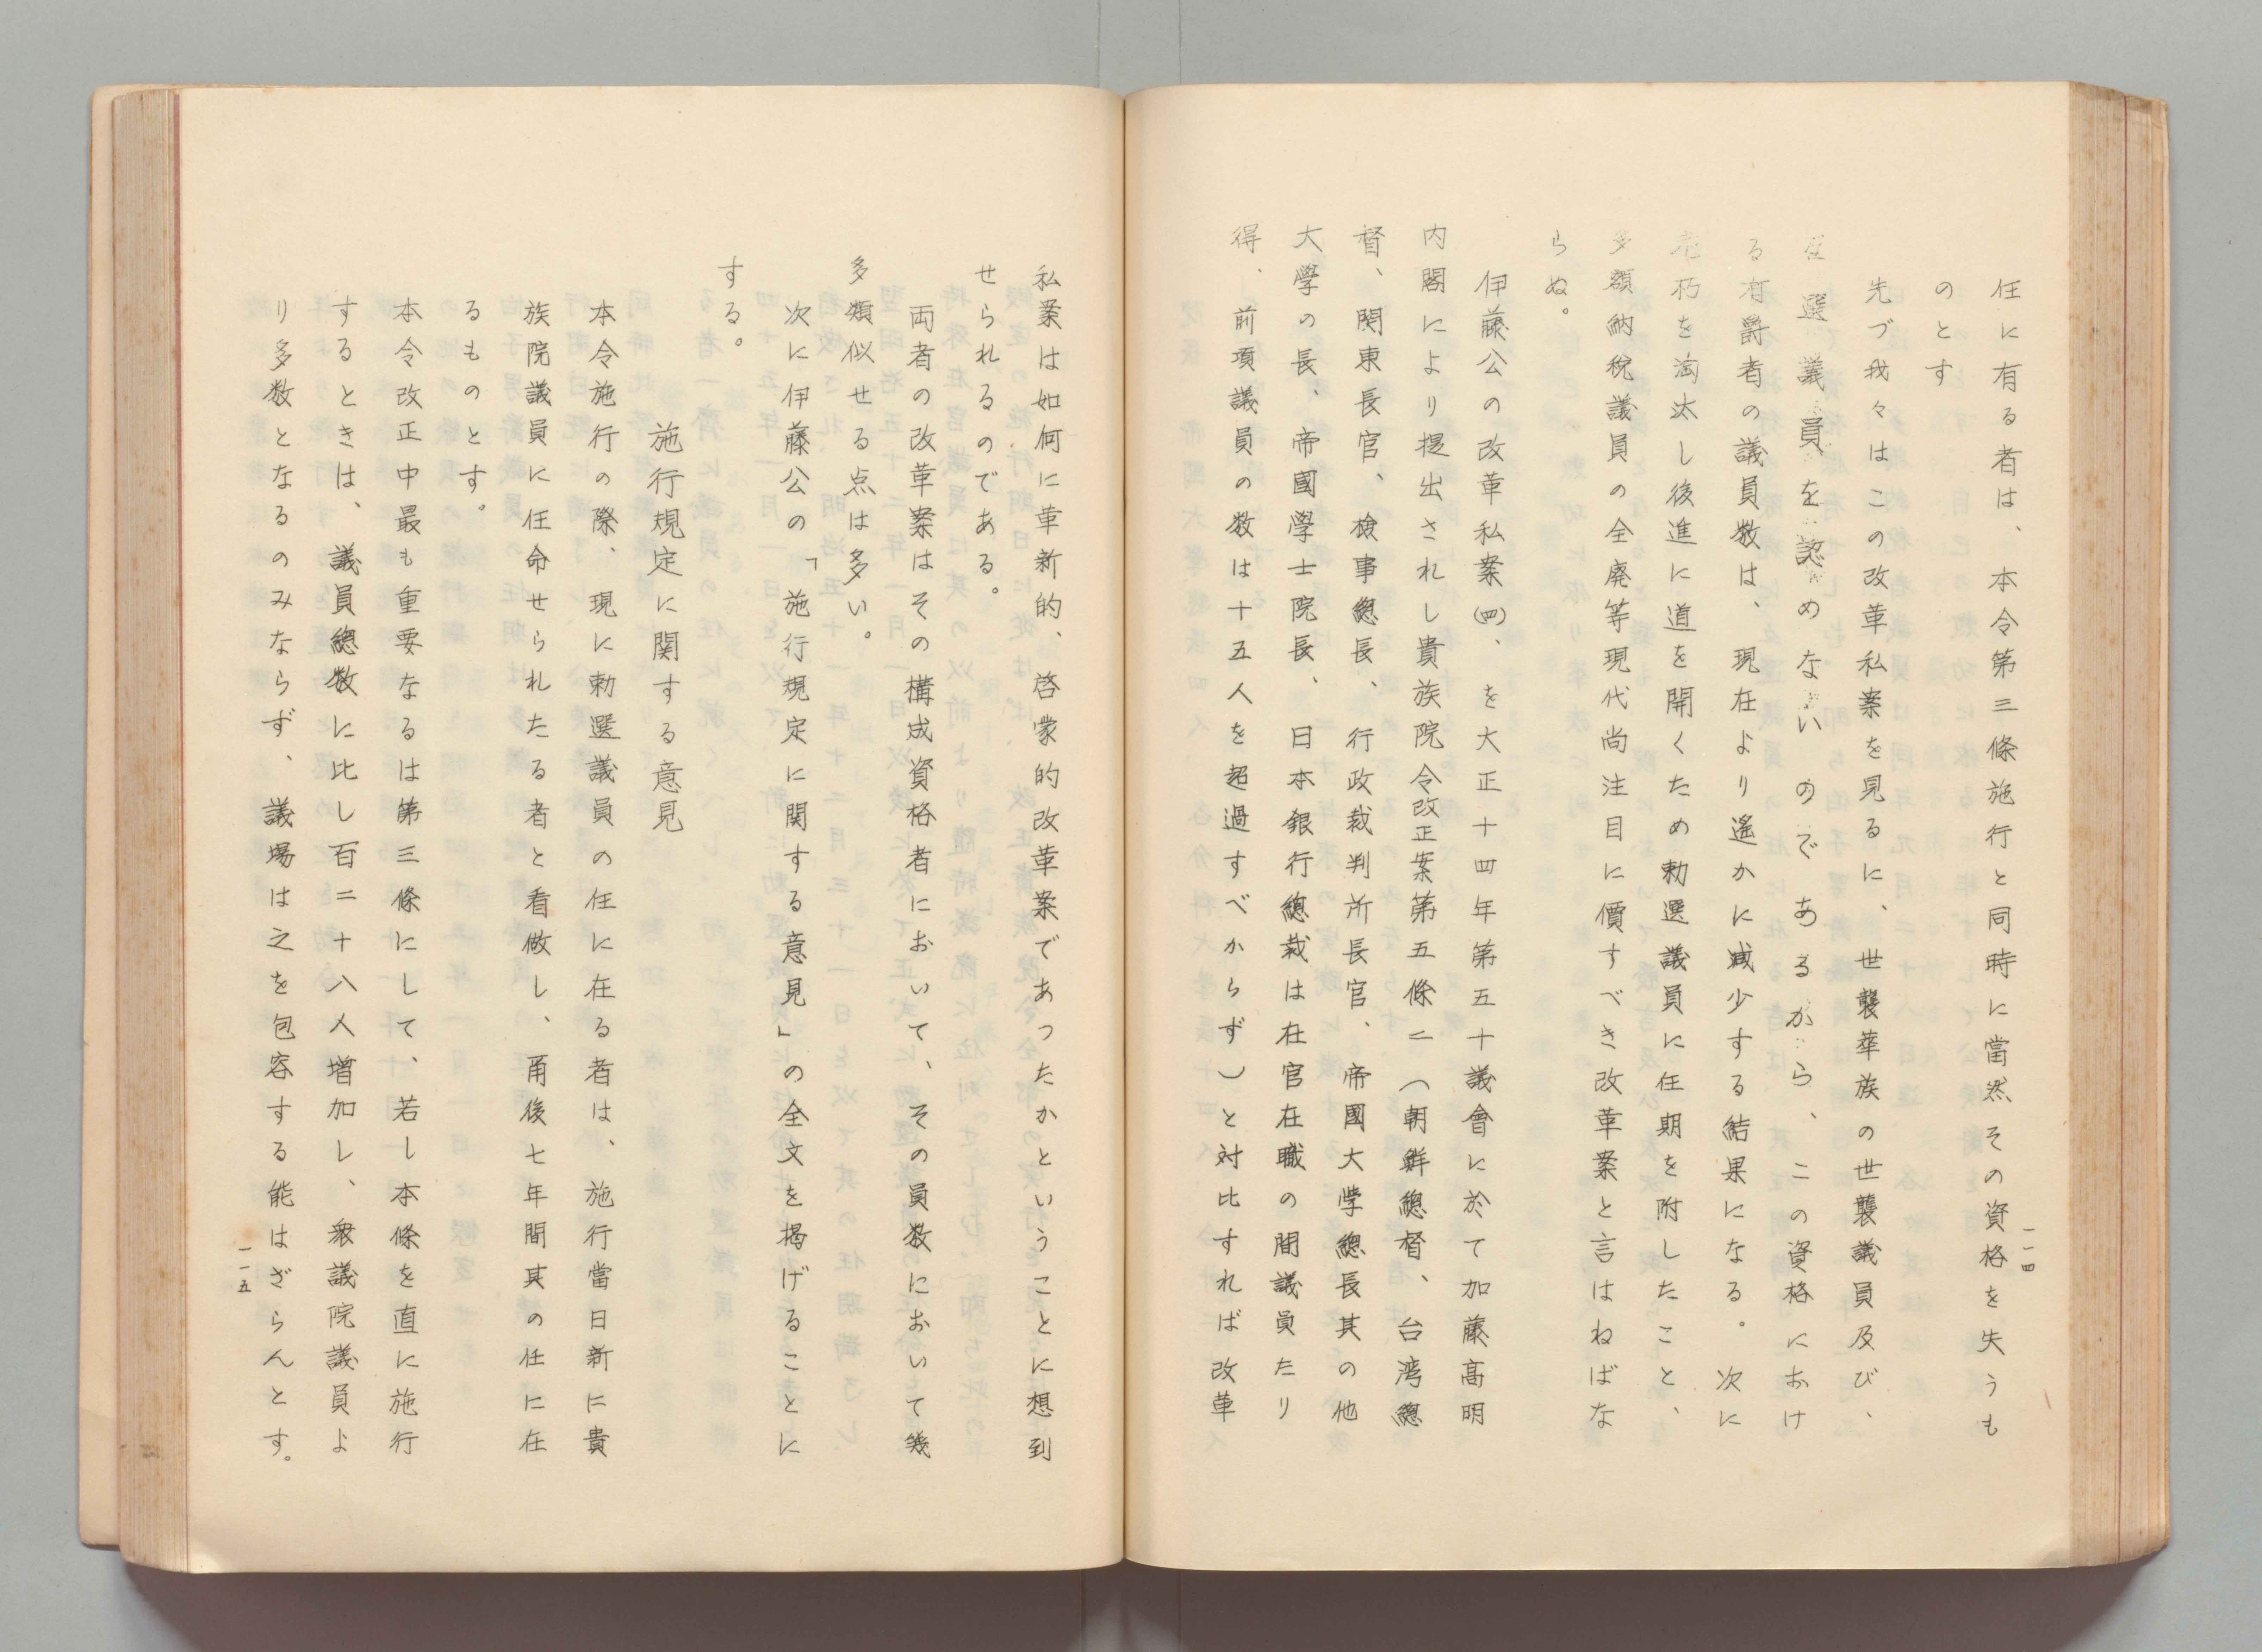 任に有る者は、本令第三條施行と同時に當然その資格を失うも
のとす
先づ我々はこの改革私案を見るに、世襲華族の世襲議員及び、
互選議員を認めないのであるから、この資格におけ
る有爵者の議員数は、現在より遙かに減少する結果になる。次に
老朽を淘汰し後進に道を開くため勅選議員に任期を附したこと、
多額納税議員の全廃等現代尚注目に價すべき改革案と言はねばな
らぬ。
伊藤公の改革私案(四)、を大正十四年第五十議會に於て加藤高明
内閣により提出されし貴族院令改正案第五條ニ（朝鮮總督、台湾總
督、関東長官、検事總長、行政裁判所長官、帝國大学總長其の他
大學の長、帝國學士院長、日本銀行總裁は在官在職の間議員たり
得、前項議員の数は十五人を超過すべからず）と対比すれば改革
一一四
私案は如何に革新的、啓蒙的改革案であつたかということに想到
せられるのである。
両者の改革案はその構成資格者において、その員数において幾
多類似せる点は多い。
次に伊藤公の「施行規定に関する意見」の全文を掲げることに
する。
施行規定に関する意見
本令施行の際、現に勅選議員の任に在る者は、施行當日新に貴
族院議員に任命せられたる者と看做し、甭後七年間其の任に在
るものとす。
本令改正中最も重要なるは第三條にして、若し本條を直に施行
するときは、議員總数に比し百二十八人増加し、衆議院議員よ
り多数となるのみならず、議場は之を包容する能はざらんとす。
一一五